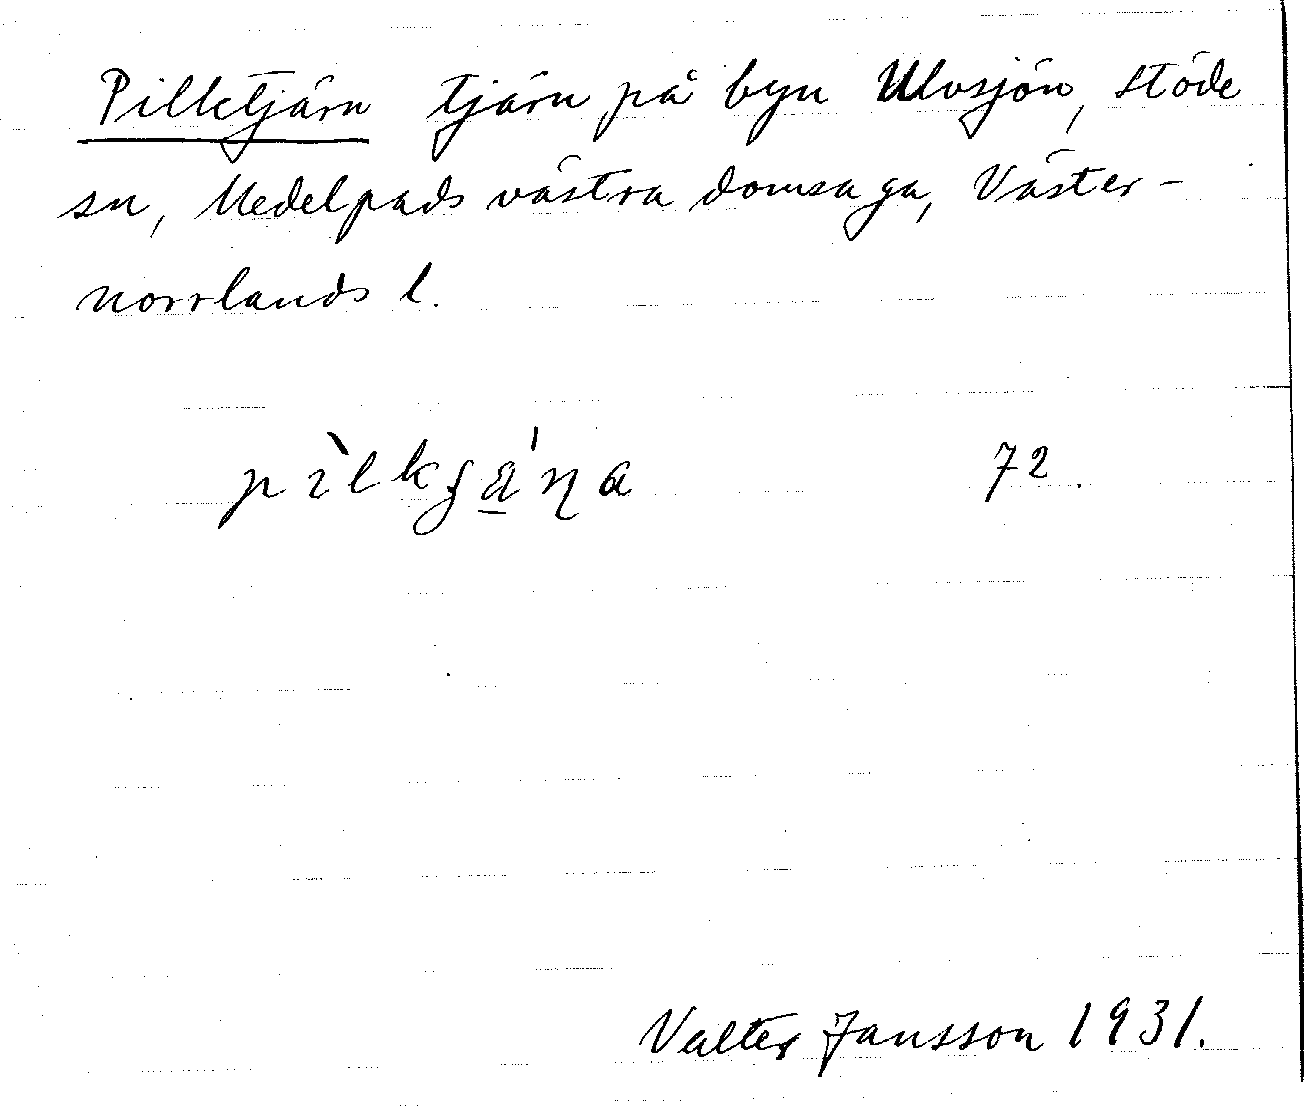 Pilktjärn tjärn på byn Ulvsjön, Stöde
sn, Medelpads västra domsaga, Väster-
norrlands l.
72.
Valter Jansson 1931.